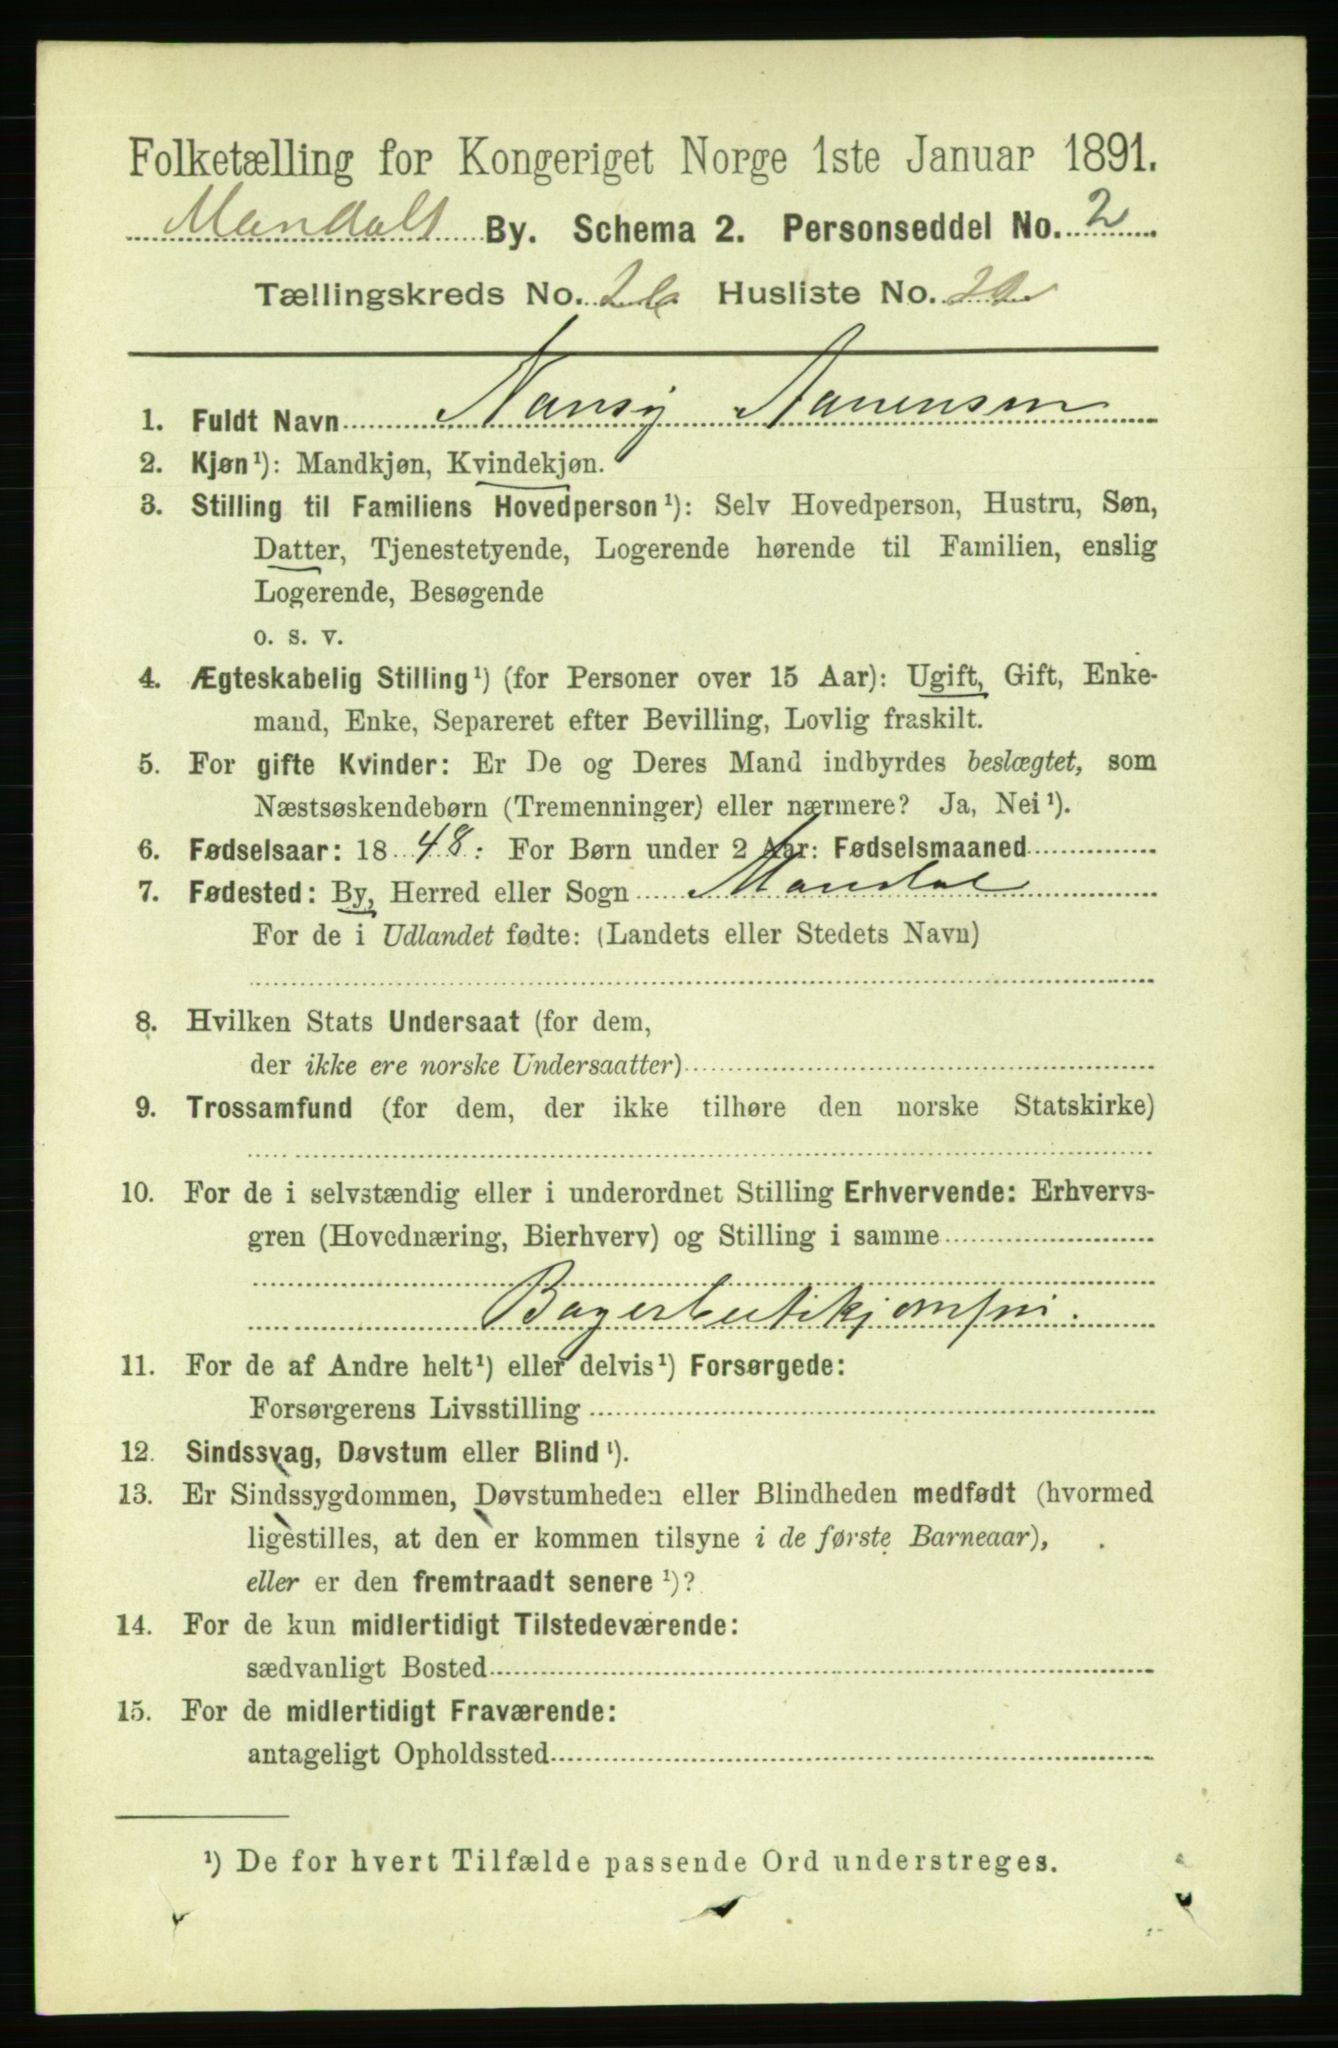 Folketælling for Kongeriget Norge 1ste Januar 1891.
Mandals By. Schema 2. Personseddel No. 2
Tællingskreds No. Husliste No.
1. Fuldt Navn Nansy Aanensen
2. Kjøn¹): Mandkjøn, Kvindekjøn.
3. Stilling til Familiens Hovedperson¹): Selv Hovedperson, Hustru, Søn,
Datter, Tjenestetyende, Logerende hørende til Familien, enslig
Logerende, Besøgende
o. s. v.
4. Ægteskabelig Stilling¹) (for Personer over 15 Aar): Ugift, Gift, Enke-
mand, Enke, Separeret efter Bevilling, Lovlig fraskilt.
5. For gifte Kvinder: Er De og Deres Mand indbyrdes beslægtet, som
Næstsøskendebørn (Tremenninger) eller nærmere? Ja, Nei¹).
6. Fødselsaar: 1848: For Børn under 2 Aar: Fødselsmaaned
7. Fødested: By, Herred eller Sogn Mandal
For de i Udlandet fødte: (Landets eller Stedets Navn)
8. Hvilken Stats Undersaat (for dem,
der ikke ere norske Undersaatter)
9. Trossamfund (for dem, der ikke tilhøre den norske Statskirke)
10. For de i selvstændig eller i underordnet Stilling Erhvervende: Erhvervs-
gren (Hovednæring, Bierhverv) og Stilling i samme
Bagerbutikjomfru.
11. For de af Andre helt¹) eller delvis¹) Forsørgede:
Forsørgerens Livsstilling
12. Sindssvag, Døvstum eller Blind¹).
13. Er Sindssygdommen, Døvstumheden eller Blindheden medfødt (hvormed
ligestilles, at den er kommen tilsyne i de første Barneaar),
eller er den fremtraadt senere¹)?
14. For de kun midlertidigt Tilstedeværende:
sædvanligt Bosted
15. For de midlertidigt Fraværende:
antageligt Opholdssted
¹) De for hvert Tilfælde passende Ord understreges.